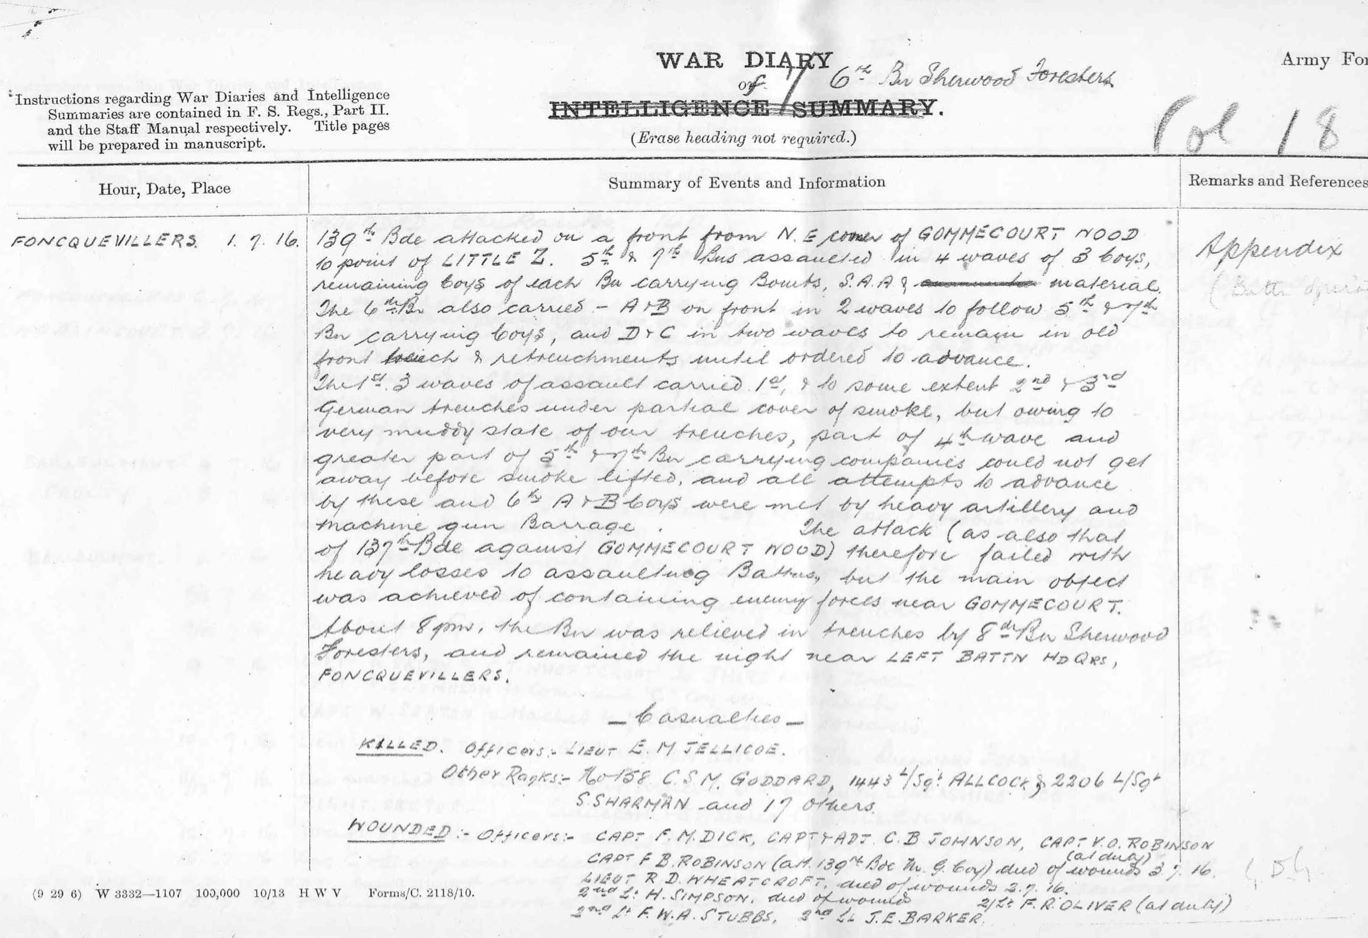 WAR DIARY
of
INTELLIGENCE SUMMARY.
6th Bn Sherwood Foresters
(Erase heading not required.)
Army For
Instructions regarding War Diaries and Intelligence
Summaries are contained in F. S. Regs., Part II.
and the Staff Manual respectively. Title pages
will be prepared in manuscript.
Vol 18
Hour, Date, Place
Summary of Events and Information
Remarks and References
FONCQUEVILLERS. 1. 7. 16.
139th Bde attacked on a front from N.E corner of GOMMECOURT WOOD
to point of LITTLE Z. 5th & 7th Bns assaulted in 4 waves of 3 Coys,
remaining Coys of each Bn carrying Bombs, S.A.A & material.
The 6th Bn also carried – A & B on front in 2 waves to follow 5th & 7th
Bn carrying Coys, and D & C in two waves to remain in old
front trench & retrenchments until ordered to advance.
The 1st 3 waves of assault carried 1st, & to some extent 2nd & 3rd
German trenches under partial cover of smoke, but owing to
very muddy state of our trenches, part of 4th wave and
greater part of 5th & 7th Bn carrying companies could not get
away before smoke lifted, and all attempts to advance
by these and 6th A & B Coys were met by heavy artillery and
machine gun Barrage. The attack (as also that
of 137th Bde against GOMMECOURT WOOD) therefore failed with
heavy losses to assaulting Battns, but the main object
was achieved of containing enemy forces near GOMMECOURT.
About 8 pm. the Bn was relieved in trenches by 8th Bn Sherwood
Foresters, and remained the night near LEFT BATTN HDQRS,
FONCQUEVILLERS.
Appendix
– Casualties –
KILLED. Officers:- LIEUT E. M JELLICOE.
Other Ranks:- No 138 C.S.M. GODDARD, 1443 L/Sgt ALLCOCK & 2206 L/Sgt
S. SHARMAN and 17 others
WOUNDED:- Officers:- CAPT F. M. DICK, CAPT & ADT. C. B JOHNSON, CAPT V. O. ROBINSON
(at duty)
CAPT F B. ROBINSON (att. 139th Bde M. G. Coy) died of wounds 3. 7. 16.
LIEUT R. D. WHEATCROFT, died of wounds 2. 7. 16.
2nd Lt. H. SIMPSON, died of wounds 2/Lt F. R. OLIVER (at duty)
2nd Lt F. W. A. STUBBS, 2nd Lt J. E. BARKER.
(9 29 6) W 3332—1107 100,000 10/13 H W V Forms/C. 2118/10.